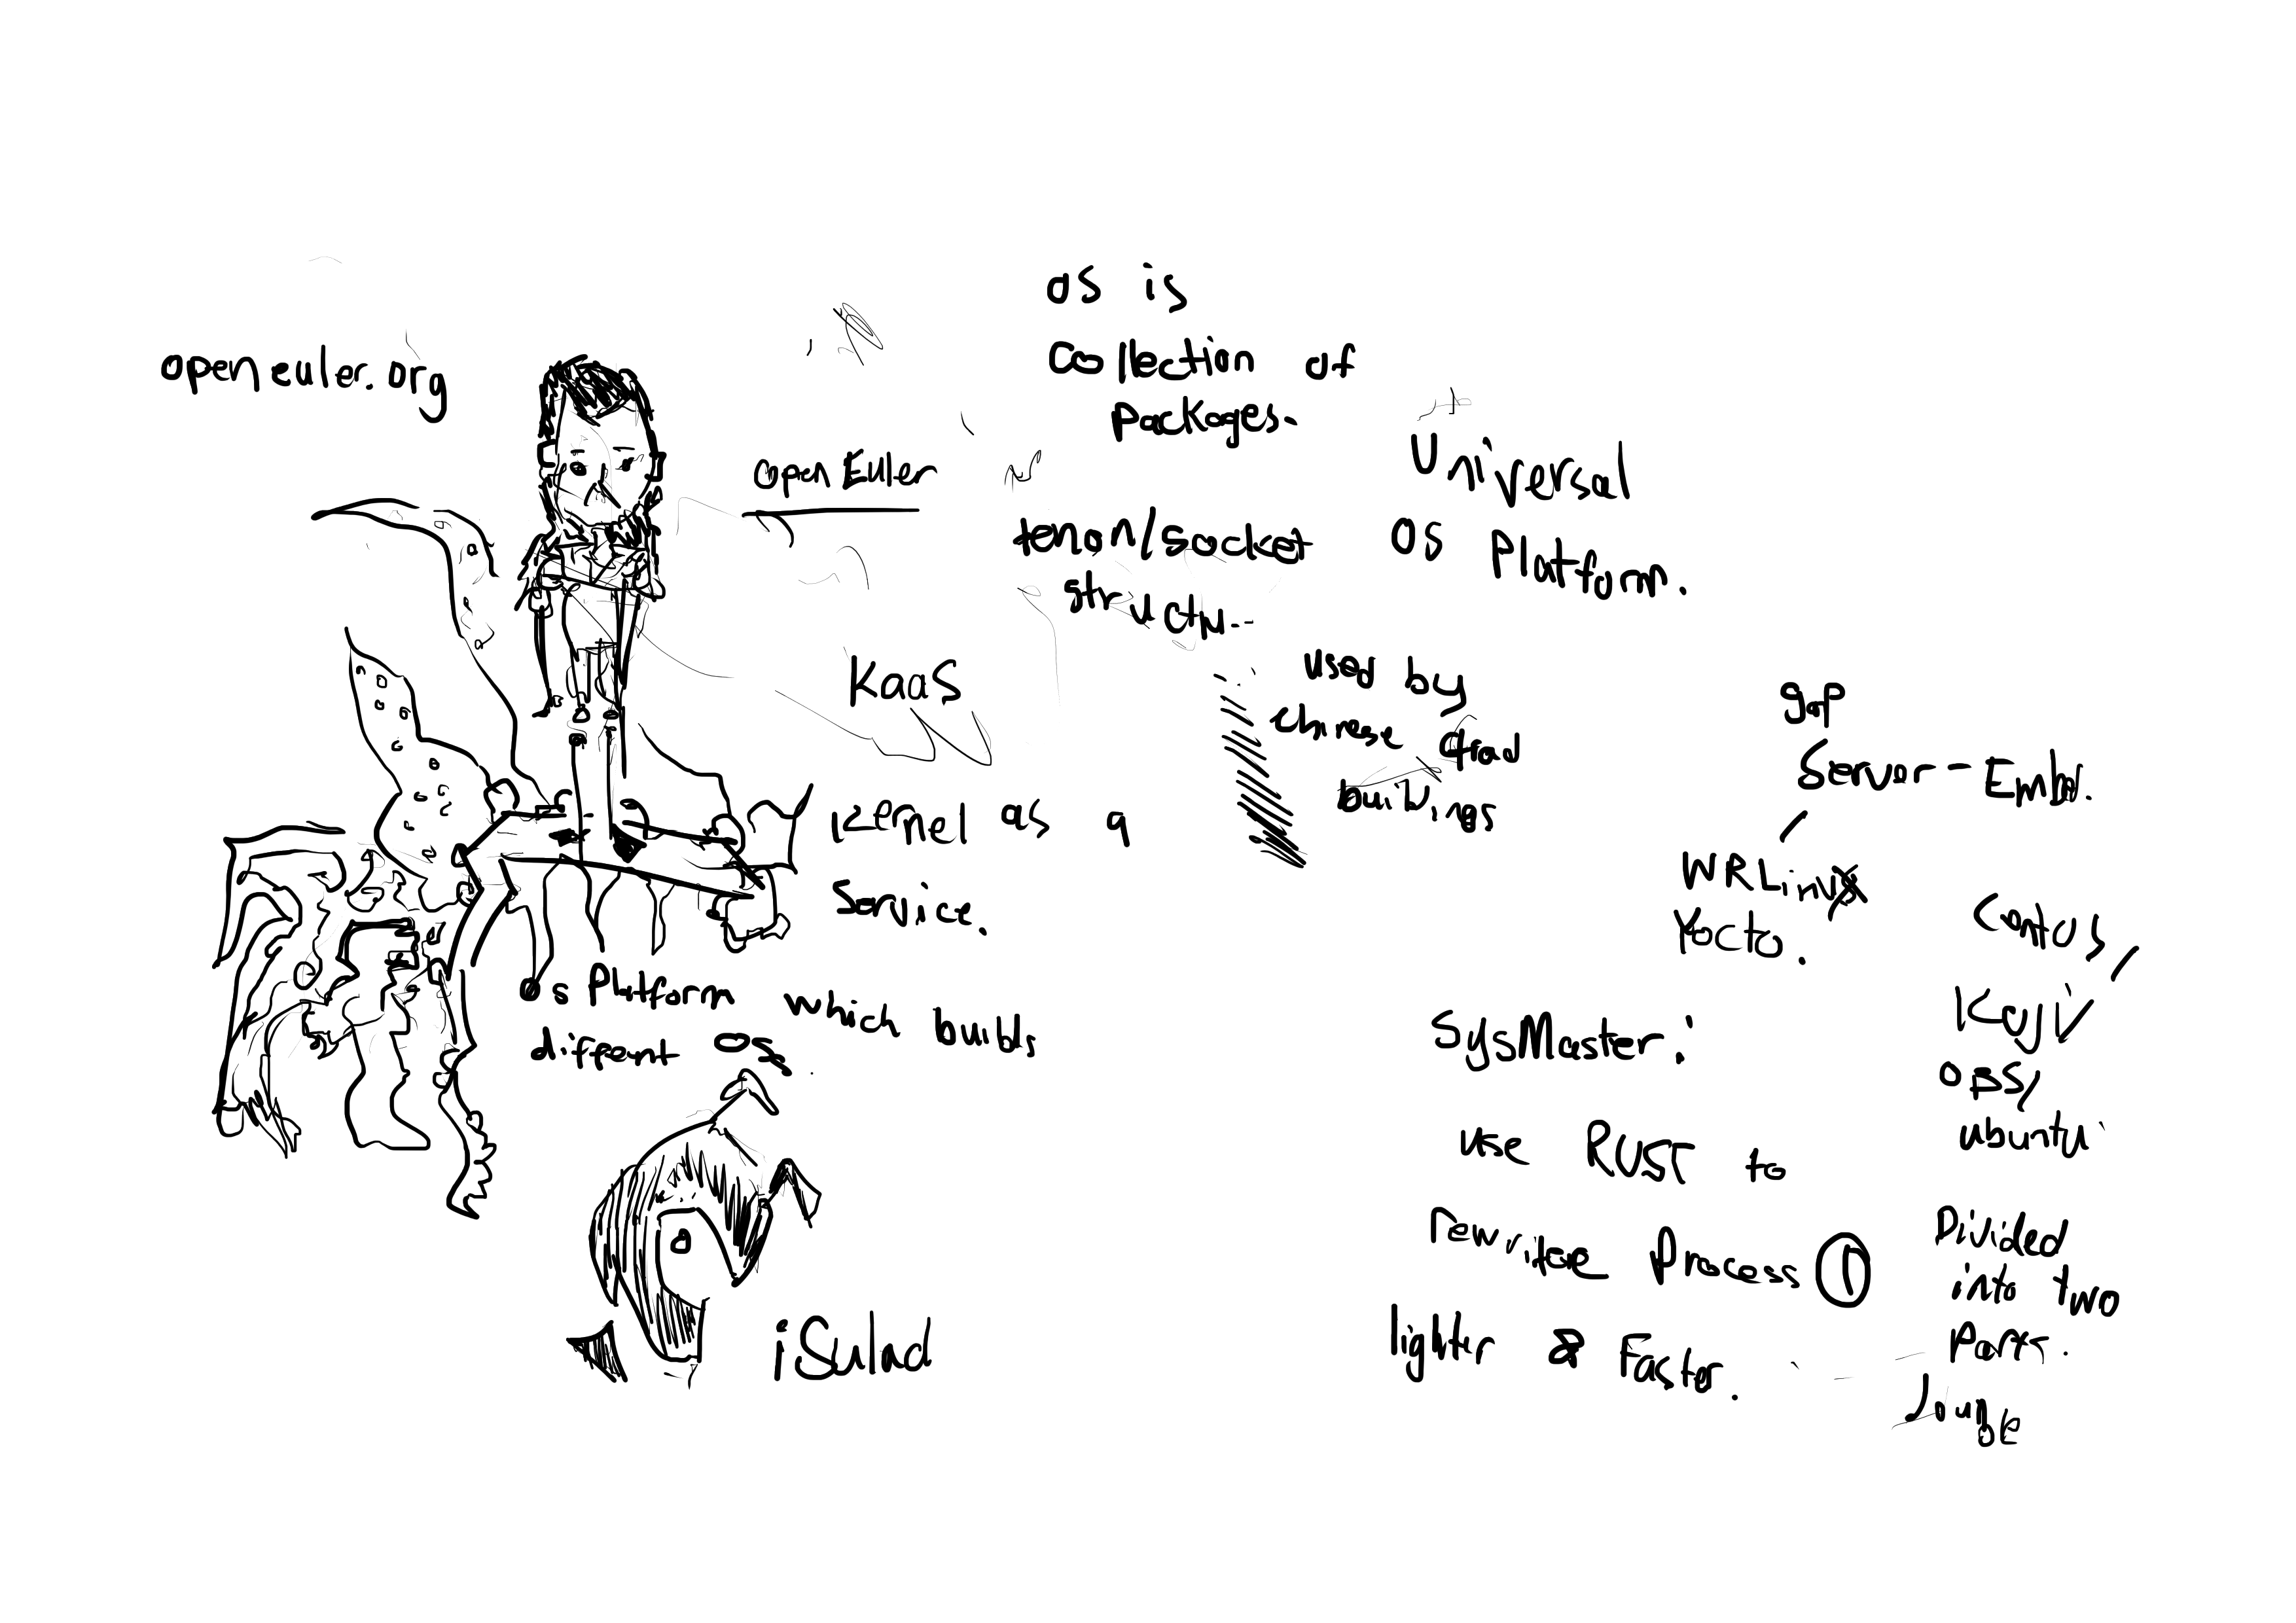 openeuler.org
openEuler
OS is
collection of
packages.
tenon/socket
structu..
Universal
OS Platform.
KaaS
Kernel as a
Service.
used by
chinese trad
buildings
gap
Server - Embd.
WRLinux
Yocto.
Centos,
Koji
OBS,
ubuntu
Os Platform which builds
diffent OS.
iSulad
SysMaster:
use RUST to
rewritee Process 1
lighter & Faster.
Divided
into two
Parts.